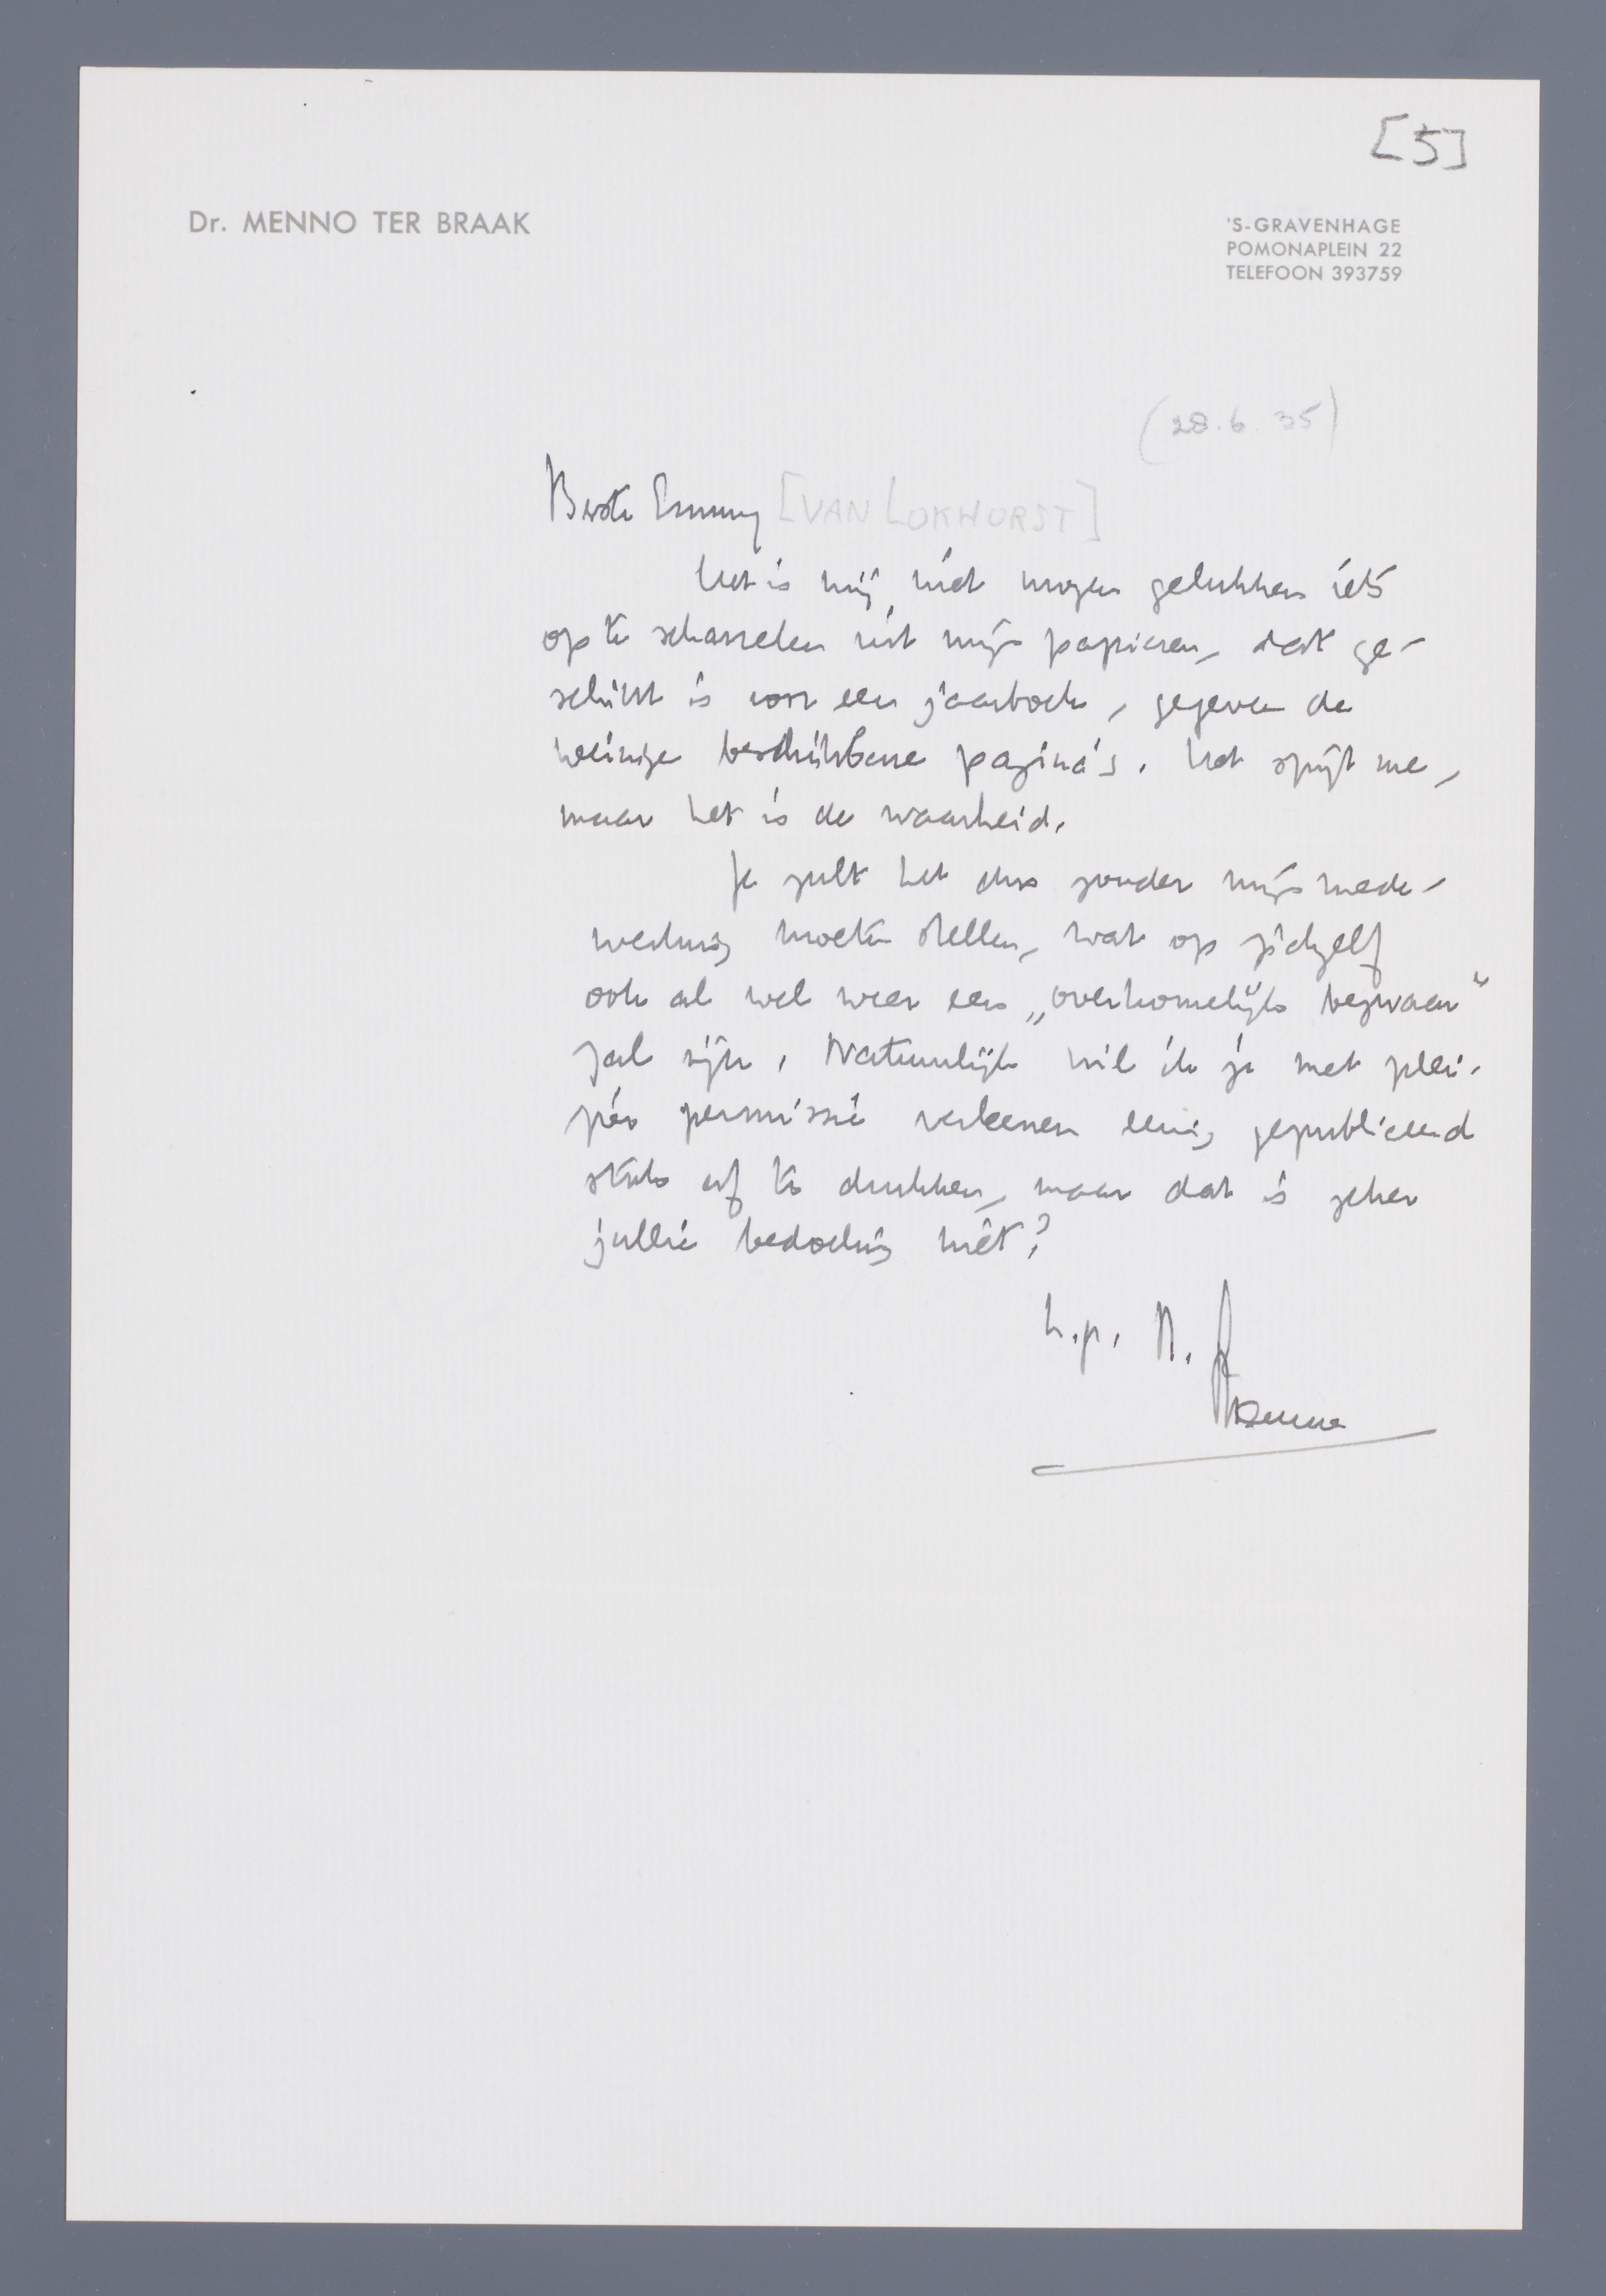 [5]
Dr. MENNO TER BRAAK
'S-GRAVENHAGE
POMONAPLEIN 22
TELEFOON 393759
(28.6.35)
Beste Emmy [VAN LOKHORST]
Het is mij niet mogen gelukken iets
op te scharrelen uit mijn papieren, dat ge-
schikt is voor een jaarboek, gegeven de
weinige beschikbare pagina's. Het spijt me,
maar het is de waarheid.
Je zult het dus zonder mijn mede-
werking moeten stellen, wat op zichzelf
ook al wel weer een „overkomelijk bezwaar"
zal zijn. Natuurlijk wil ik je met plei-
zier permissie verleenen eenig gepubliceerd
stuk af te drukken, maar dat is zeker
jullie bedoeling niet?
h.gr. M.
Menno